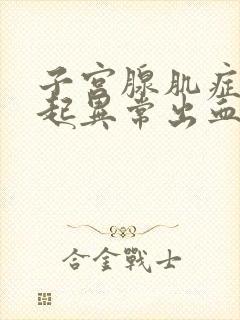 子宫腺肌症
起異常出血
合金戰士